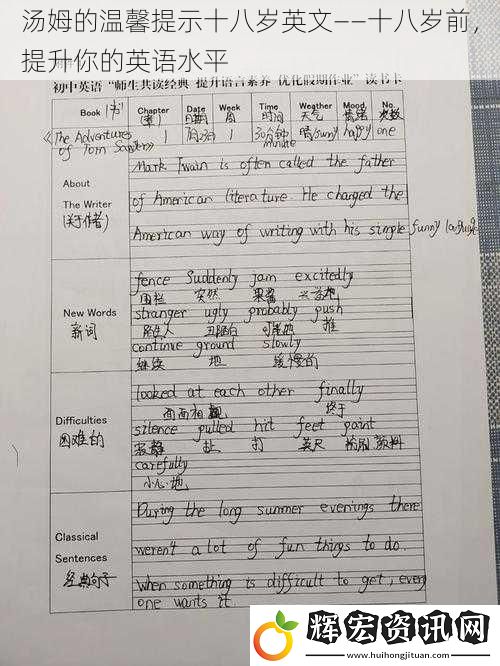 汤姆的温馨提示十八岁英文——十八岁前,
提升你的英语水平
初中英语“师生共读经典 提升语言素养 优化假期作业”读书卡
Book (书) Chapter (章) Date 日期 Week 周 Time 时间 Weather 天气 Mood 情绪 No. 次数
《The Adventures of Tom Sawyer》 1 1 30分钟 minute 晴sunny happy one
About The Writer (关于作者)
Mark Twain is often called the father
of American literature. He changed the
American way of writing with his simple funny language
New Words 新词
fence Suddenly jam excitedly
围栏 突然 果酱 兴奋地
stranger ugly probably push
陌生人 丑陋的 可能地 推
continue ground slowly
继续 地 缓慢的
Difficulties 困难的
looked at each other finally
面面相觑 终于
silence pulled hit feet paint
寂静 扯 打 英尺 颜料
carefully
小心地
Classical Sentences 经典句子
During the long summer evenings there
weren't a lot of fun things to do.
When something is difficult to get, every
one wants it.
辉宏资讯网
www.huihongjituan.com